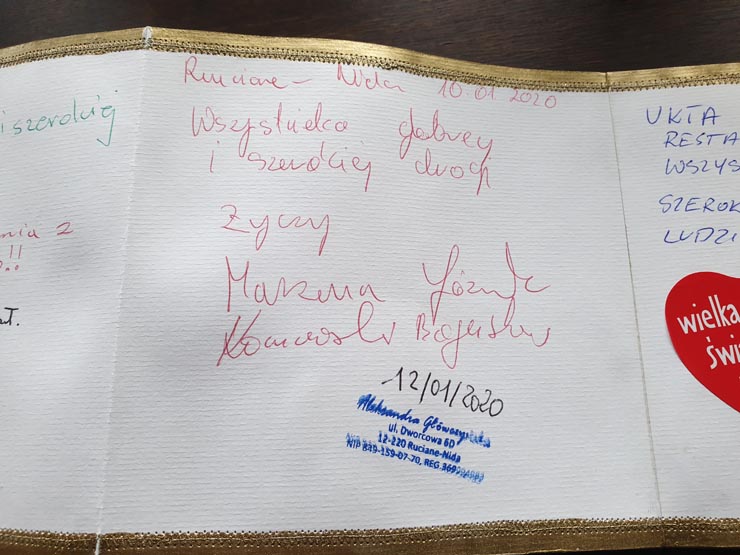 i szerokiej
!!
Ruciane - Nida 10.01.2020
Wszystkiego dobrego
i szerokiej drogi
życzy
Marzena
Bogusław
12/01/2020
Aleksandra
ul. Dworcowa 6D
12-220 Ruciane-Nida
NIP 849-159-07-70, REG.369
UKTA
RESTA
WSZYS
SZEROK
LUDZI
wielka
świ